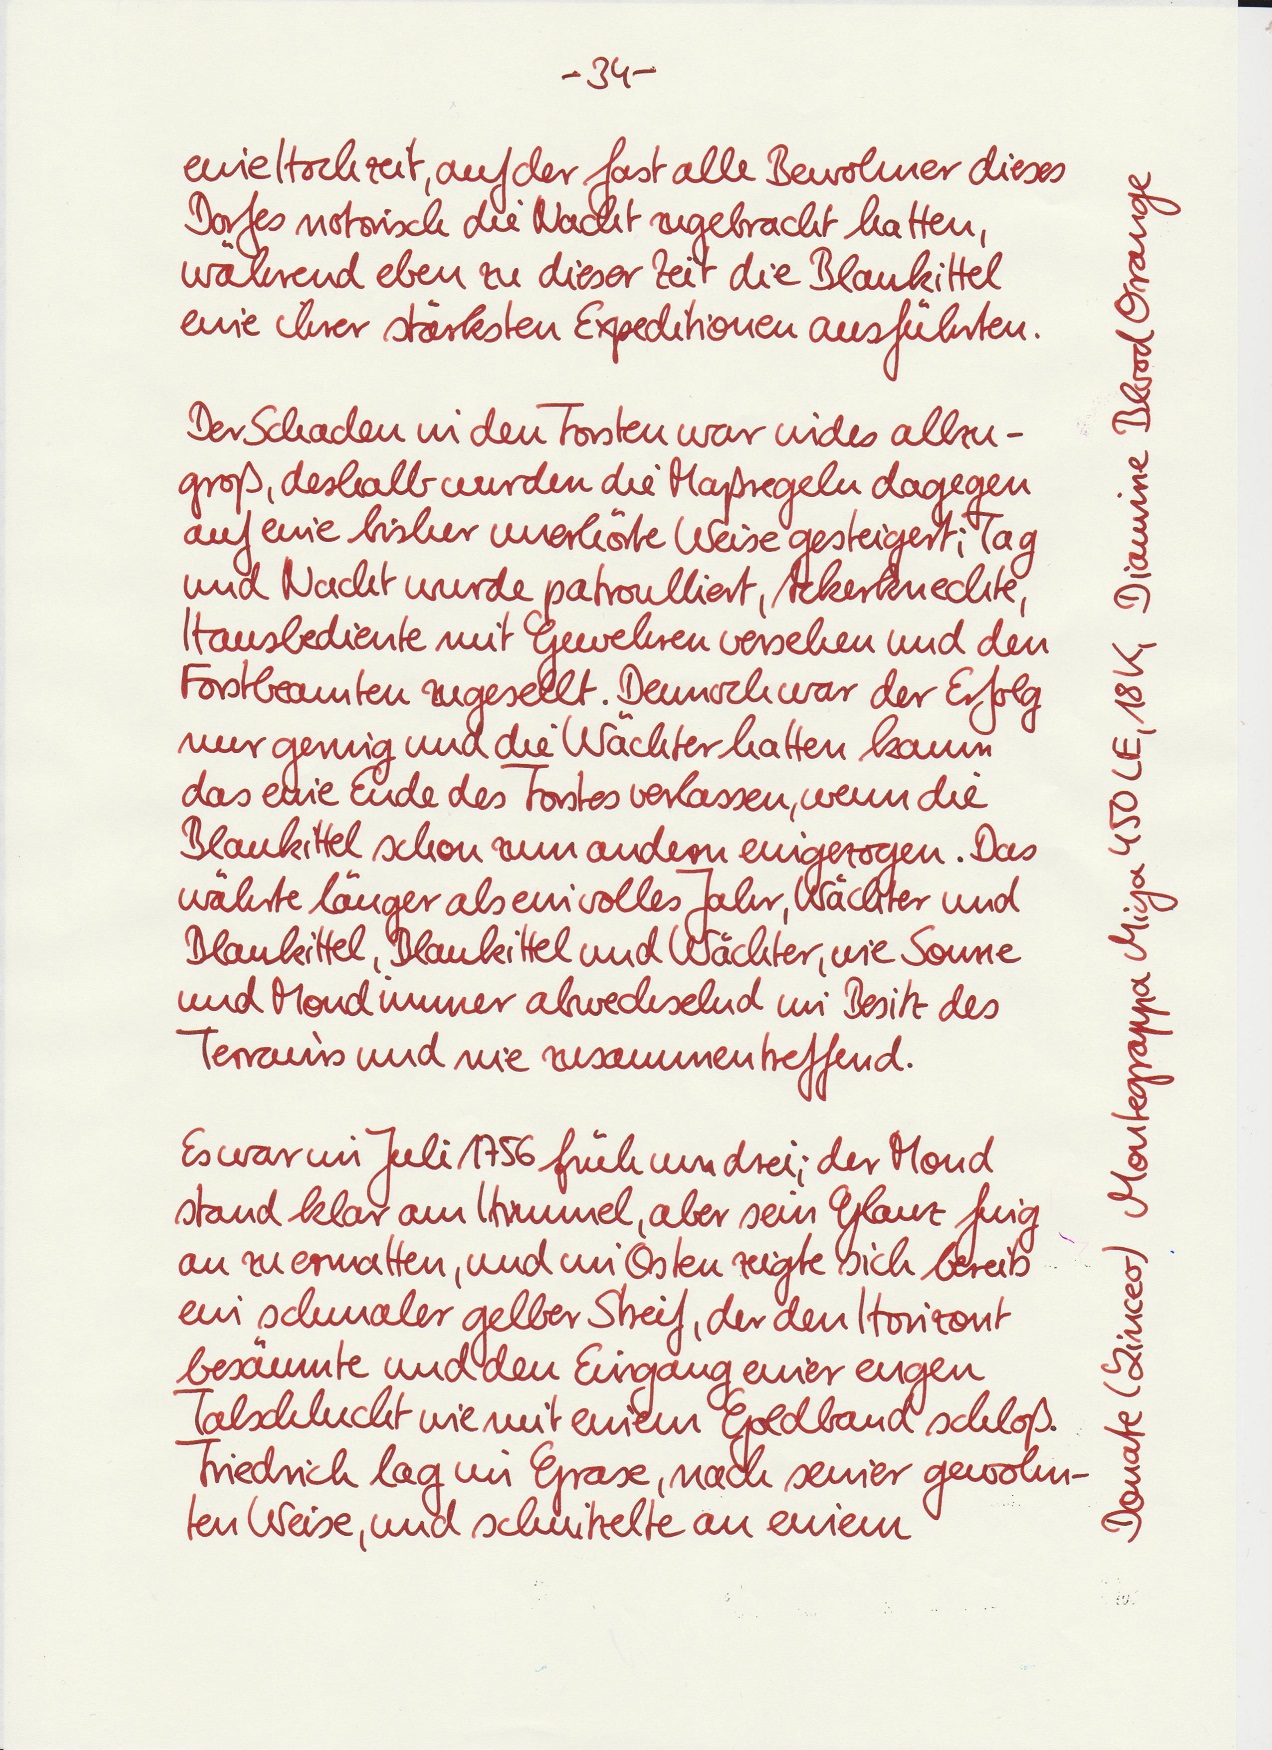 -34-
eine Hochzeit, auf der fast alle Bewohner dieses
Dorfes notorisch die Nacht zugebracht hatten,
während eben zu dieser Zeit die Blaukittel
eine ihrer stärksten Expeditionen ausführten.
Der Schaden in den Forsten war indes allzu-
groß, deshalb wurden die Maßregeln dagegen
auf eine bisher unerhörte Weise gesteigert; Tag
und Nacht wurde patroulliert, Ackerknechte,
Hausbediente mit Gewehren versehen und den
Forstbeamten zugesellt. Dennoch war der Erfolg
nur gering und die Wächter hatten kaum
das eine Ende des Forstes verlassen, wenn die
Blaukittel schon zum andern eingezogen. Das
währte länger als ein volles Jahr, Wächter und
Blaukittel, Blaukittel und Wächter, wie Sonne
und Mond immer abwechselnd im Besitz des
Terrains und nie zusammentreffend.
Es war im Juli 1756 früh um drei; der Mond
stand klar am Himmel, aber sein Glanz fing
an zu ermatten, und im Osten zeigte sich bereits
ein schmaler gelber Streif, der den Horizont
besäumte und den Eingang einer engen
Talschlucht wie mit einem Goldband schloß.
Friedrich lag im Grase, nach seiner gewohn-
ten Weise, und schnitzelte an einem
Donate (Linceo) Montegrappa Miya 450 LE, 18K, Diamine Blood Orange